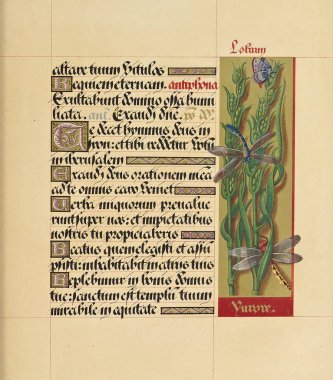 Lolium
altare tuum vitulos
Requiem eternam. antiphona
Exultabunt domino ossa humi
liata. Exaudi dñe.
Te decet hymnus deus in
syon: et tibi reddetur votū
in iherusalem
Exaudi deus orationem meā
ad te omnis caro veniet
Verba iniquorum prevalue
runt super nos: et impietatibus
nostris tu propiciaberis
Beatus quem elegisti et assū
psisti: inhabitabit in atriis tuis
Replebimur in bonis domus
tue: sanctum est templū tuum
mirabile in equitate
Yuroye.